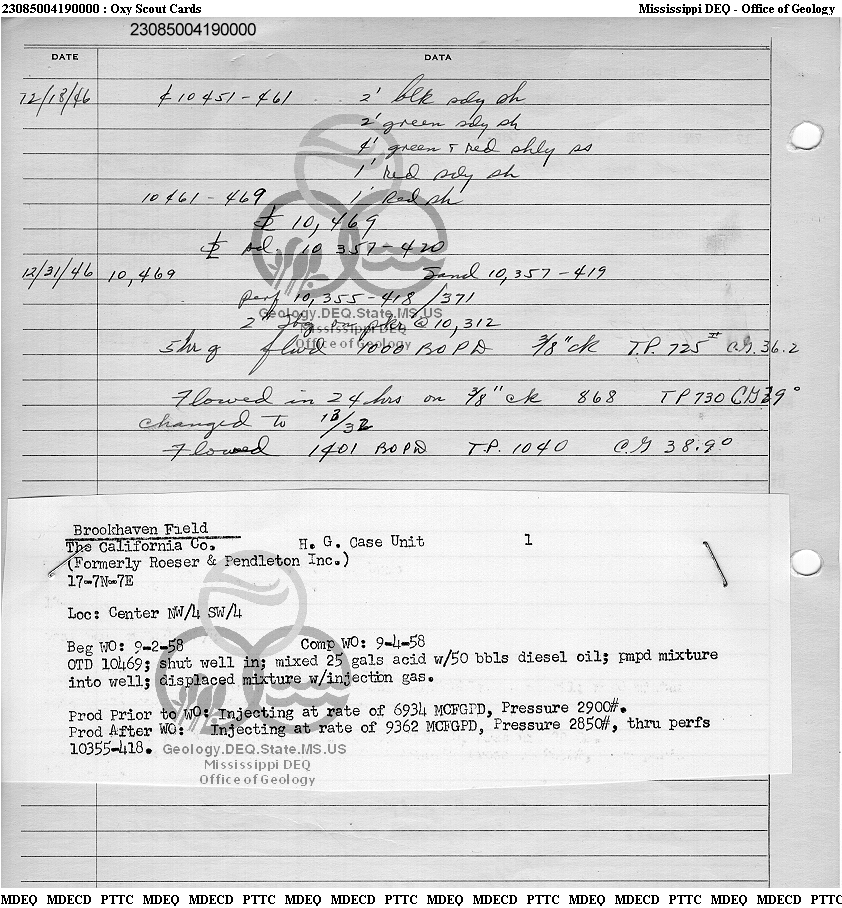 23085004190000 : Oxy Scout Cards Mississippi DEQ - Office of Geology
23085004190000
DATE DATA
12/18/46 ¢ 10451-461 .. 2' blk sdy sh
2' green sdy sh
4' green & red shly ss
1' red sdy sh
10461-469 1' Red sh
10,469
sd. 10357-420
12/31/46 10,469 Sand 10,357-419
perf 10,355-418 /371
2" tbg on pkr @ 10,312
Geology.DEQ.State.MS.US
Mississippi DEQ
Office of Geology
5 hr g flwd 1000 BOPD 3/8" ck T.P. 725# C.G. 36.2
Flowed in 24 hrs on 3/8" ck 868 TP 730 CG 39°
changed to 13/32
Flowed 1401 BOPD T.P. 1040 C.G 38.9°
Brookhaven Field
The California Co. H. G. Case Unit 1
(Formerly Roeser & Pendleton Inc.)
17-7N-7E
Loc: Center NW/4 SW/4
Beg WO: 9-2-58 Comp WO: 9-4-58
OTD 10469; shut well in; mixed 25 gals acid w/50 bbls diesel oil; pmpd mixture
into well; displaced mixture w/injection gas.
Prod Prior to WO: Injecting at rate of 6934 MCFGPD, Pressure 2900#.
Prod After WO: Injecting at rate of 9362 MCFGPD, Pressure 2850#, thru perfs
10355-418.
Geology.DEQ.State.MS.US
Mississippi DEQ
Office of Geology
MDEQ MDECD PTTC MDEQ MDECD PTTC MDEQ MDECD PTTC MDEQ MDECD PTTC MDEQ MDECD PTTC MDEQ MDECD PTTC